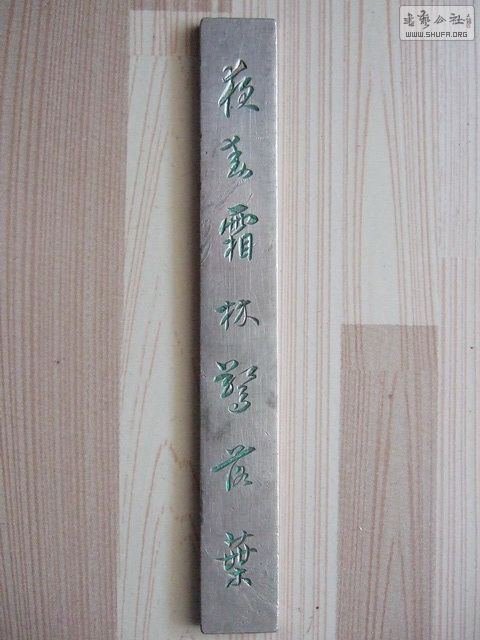 书艺公社
WWW.SHUFA.ORG
夜霜林驚落葉